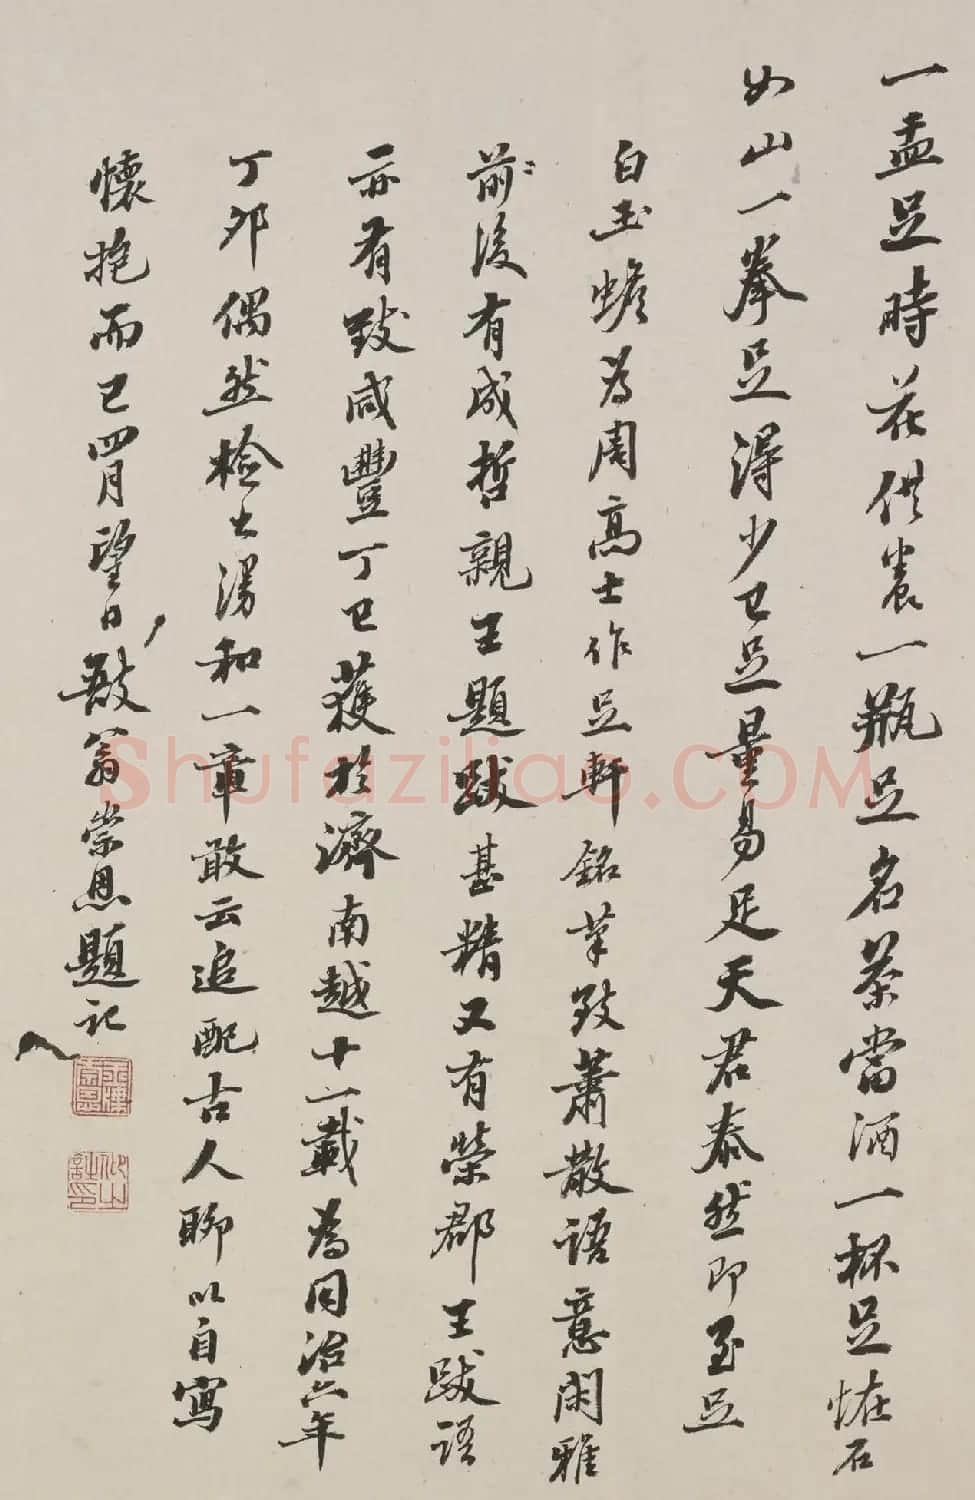 一盂足時花供養一瓶足名茶當酒一杯足恠石
如山一拳足得少已足量易足天君泰然即至足
白玉蟾為周高士作足軒銘筆致蕭散語意閑雅
前後有成哲親王題跋甚精又有榮郡王跋語
亦有致咸豐丁巳獲於濟南越十一載為同治六年
丁卯偶然檢出漫和一章敢云追配古人聊以自寫
懷抱而已四月望日敔翁崇恩題記
Shufaziliao.COM